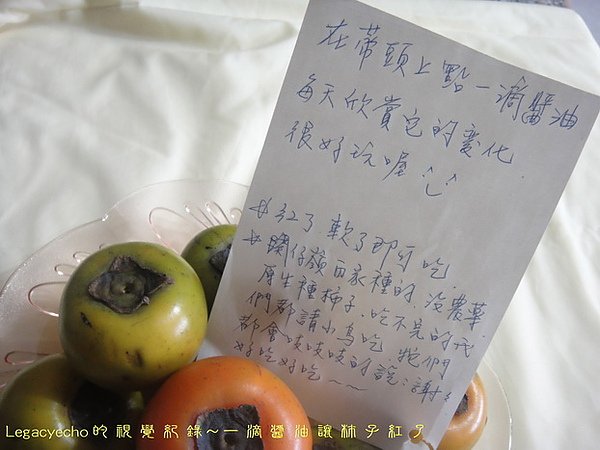 在蒂頭上點一滴醬油
每天欣賞它的變化
很好玩喔
紅了軟了即可吃.
關仔嶺酉家種的.沒農藥.
原生種柿子.吃不完的我
們都請小鳥吃.牠們
都會吱吱吱的說:謝謝
好吃好吃~~
Legacyecho的視覺紀錄~一滴醬油讓柿子紅了